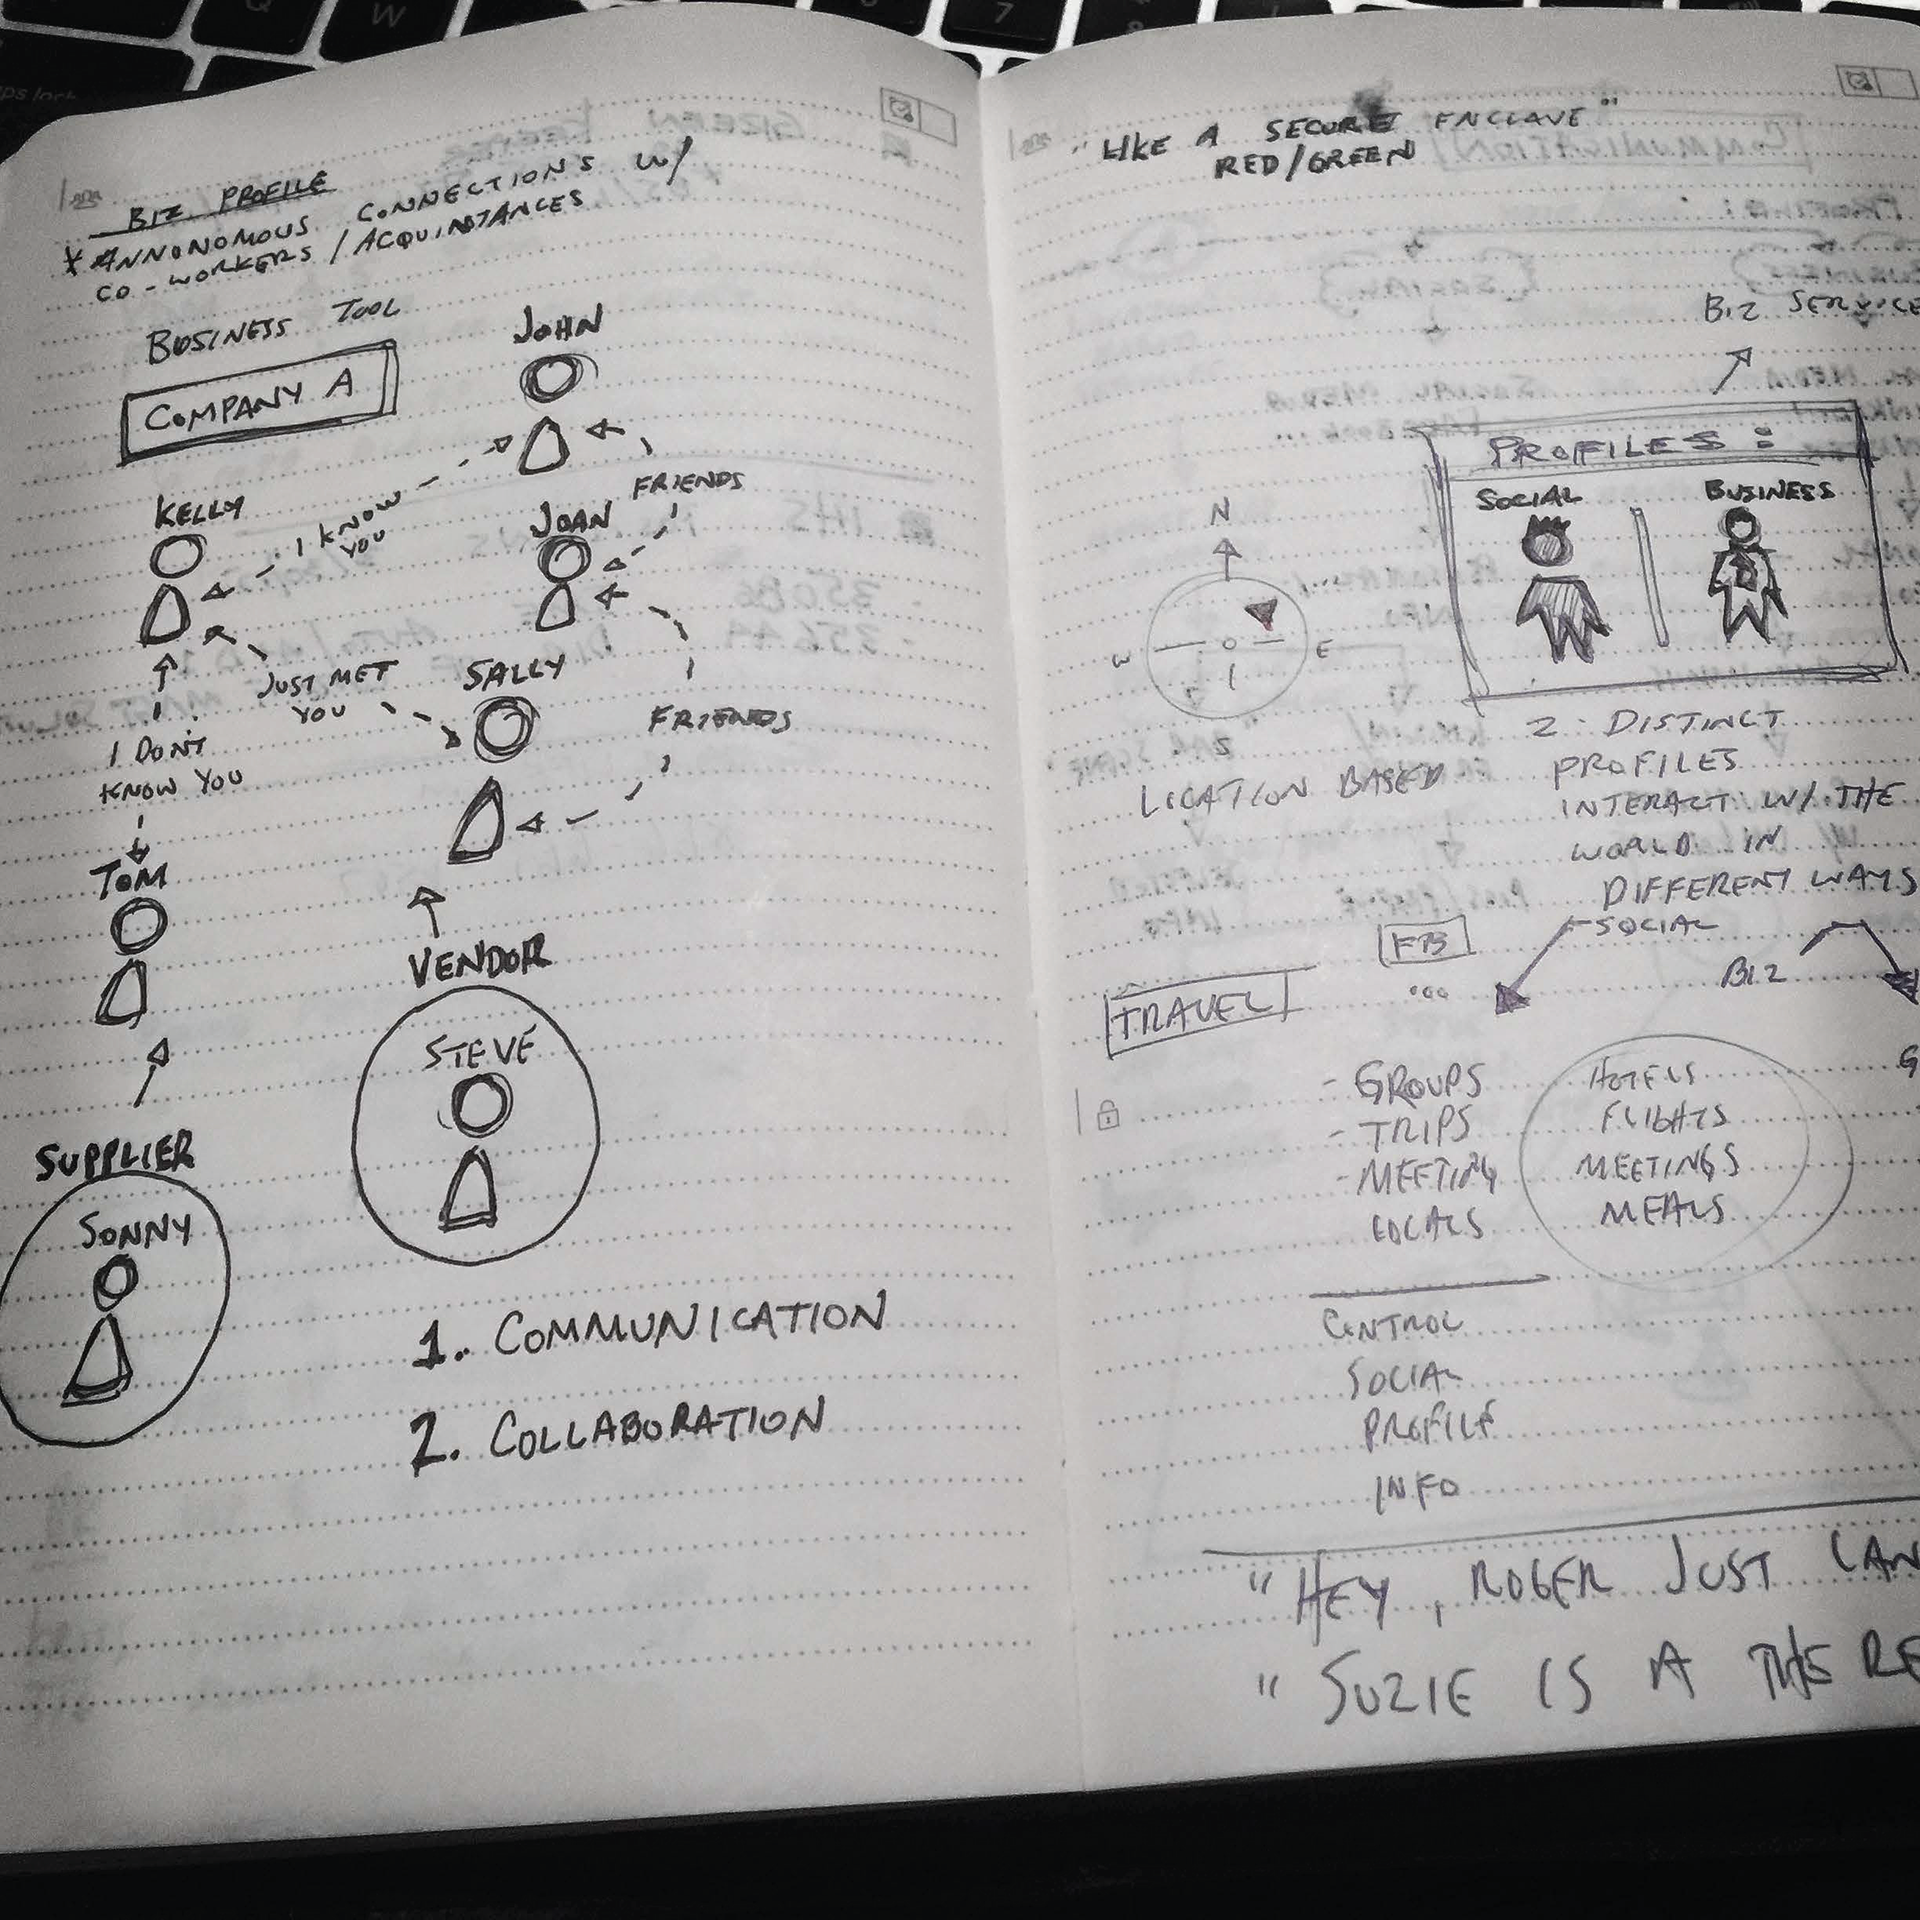 BIZ PROFILE
* ANNONOMOUS CONNECTIONS W/
CO-WORKERS / ACQUINTANCES
BUSINESS TOOL
COMPANY A
JOHN
KELLY
I KNOW
YOU
FRIENDS
JOAN
JUST MET
YOU
SALLY
FRIENDS
I DON'T
KNOW YOU
TOM
VENDOR
STEVE
SUPPLIER
SONNY
1. COMMUNICATION
2. COLLABORATION
"LIKE A SECURE ENCLAVE"
RED/GREEN
BIZ SERVICE
PROFILES:
SOCIAL
BUSINESS
N
W
E
S
LOCATION BASED
2 DISTINCT
PROFILES
INTERACT W/ THE
WORLD IN
DIFFERENT WAYS
SOCIAL
BIZ
FB
...
TRAVEL
- GROUPS
- TRIPS
- MEETING
LOCALS
HOTELS
FLIGHTS
MEETINGS
MEALS
G
CONTROL
SOCIAL
PROFILE
INFO
"HEY, ROGER JUST LAN
"SUZIE IS A THE RE
Q
W
7